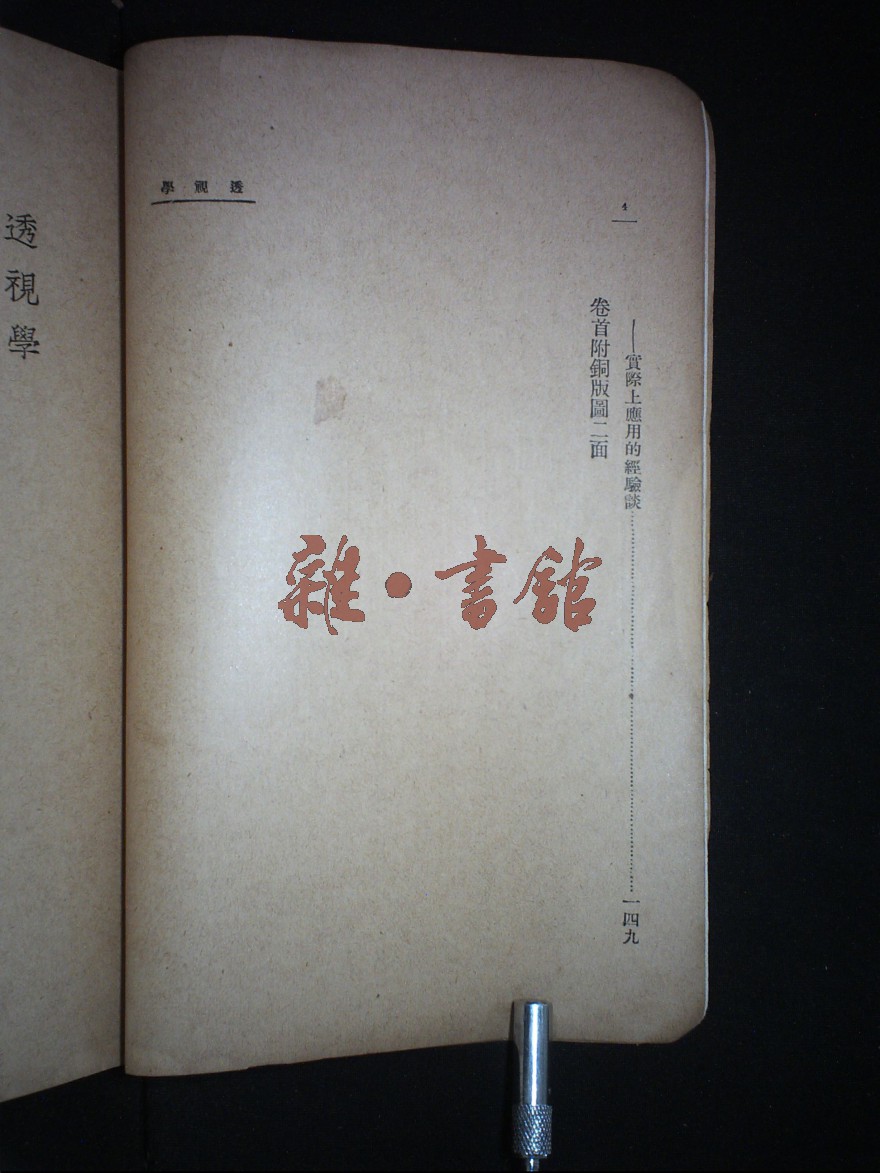 透視學
4
──實際上應用的經驗談……一四九
卷首附銅版圖二面
透視學
雜·書館